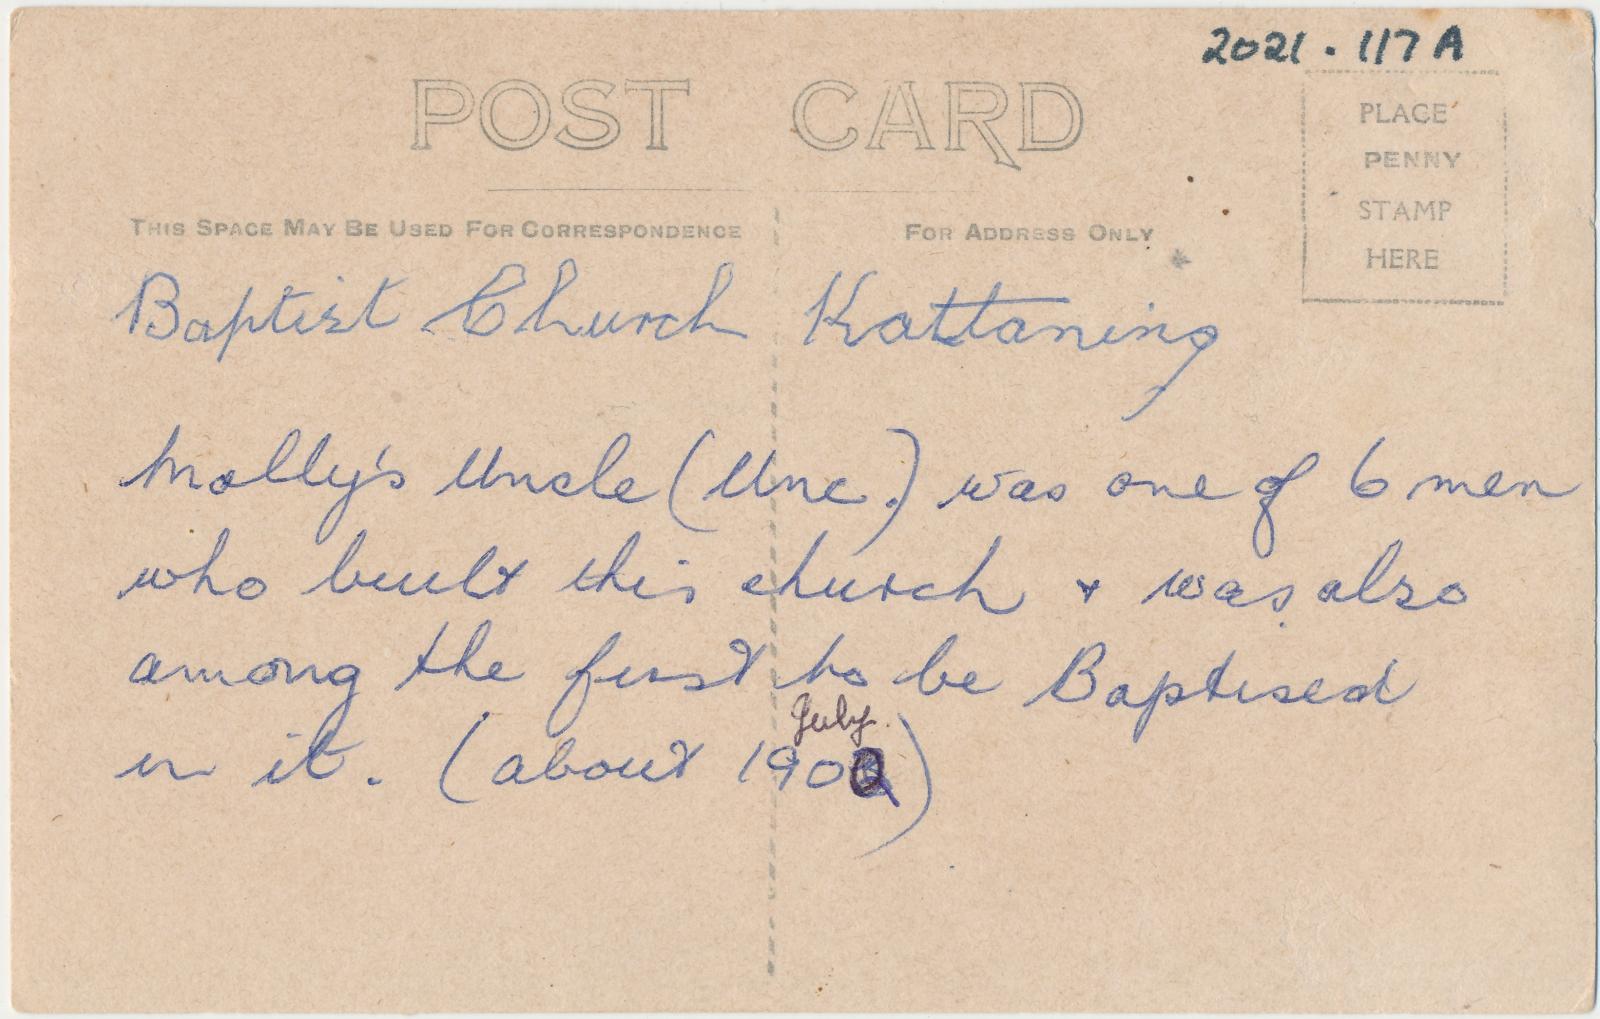 2021 · 117 A
POST CARD
PLACE
PENNY
STAMP
HERE
THIS SPACE MAY BE USED FOR CORRESPONDENCE
FOR ADDRESS ONLY
Baptist Church Kattaning
Molly's Uncle (Unc.) was one of 6 men
who built this church + was also
among the first to be Baptised
July.
in it. (about 1900)